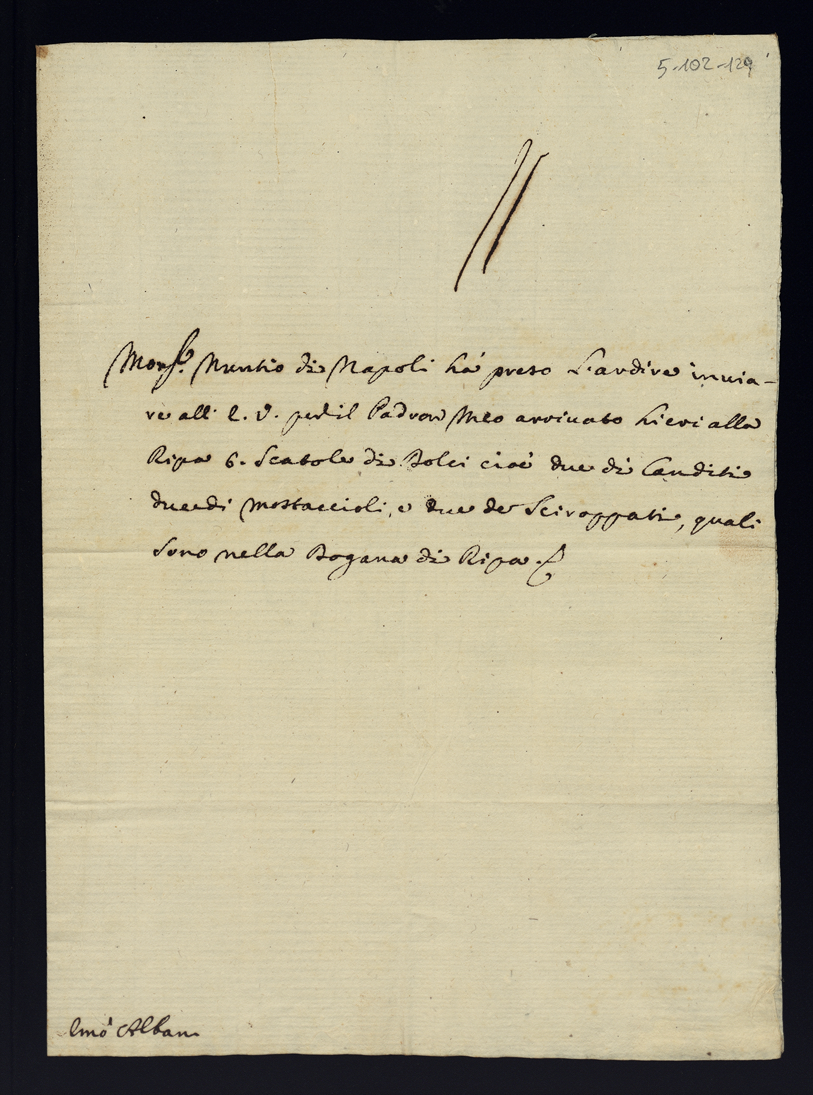 5-102-129
Mons.r Nuntio di Napoli há preso L'ardire inuia-
re all' E. V. per il Padron Meo arriuato hieri alla
Ripa 6. Scatole di Dolci cioé due di Canditi
due di mostaccioli, e due de Sciroppati, quali
sono nella Dogana di Ripa.
Emó Albani